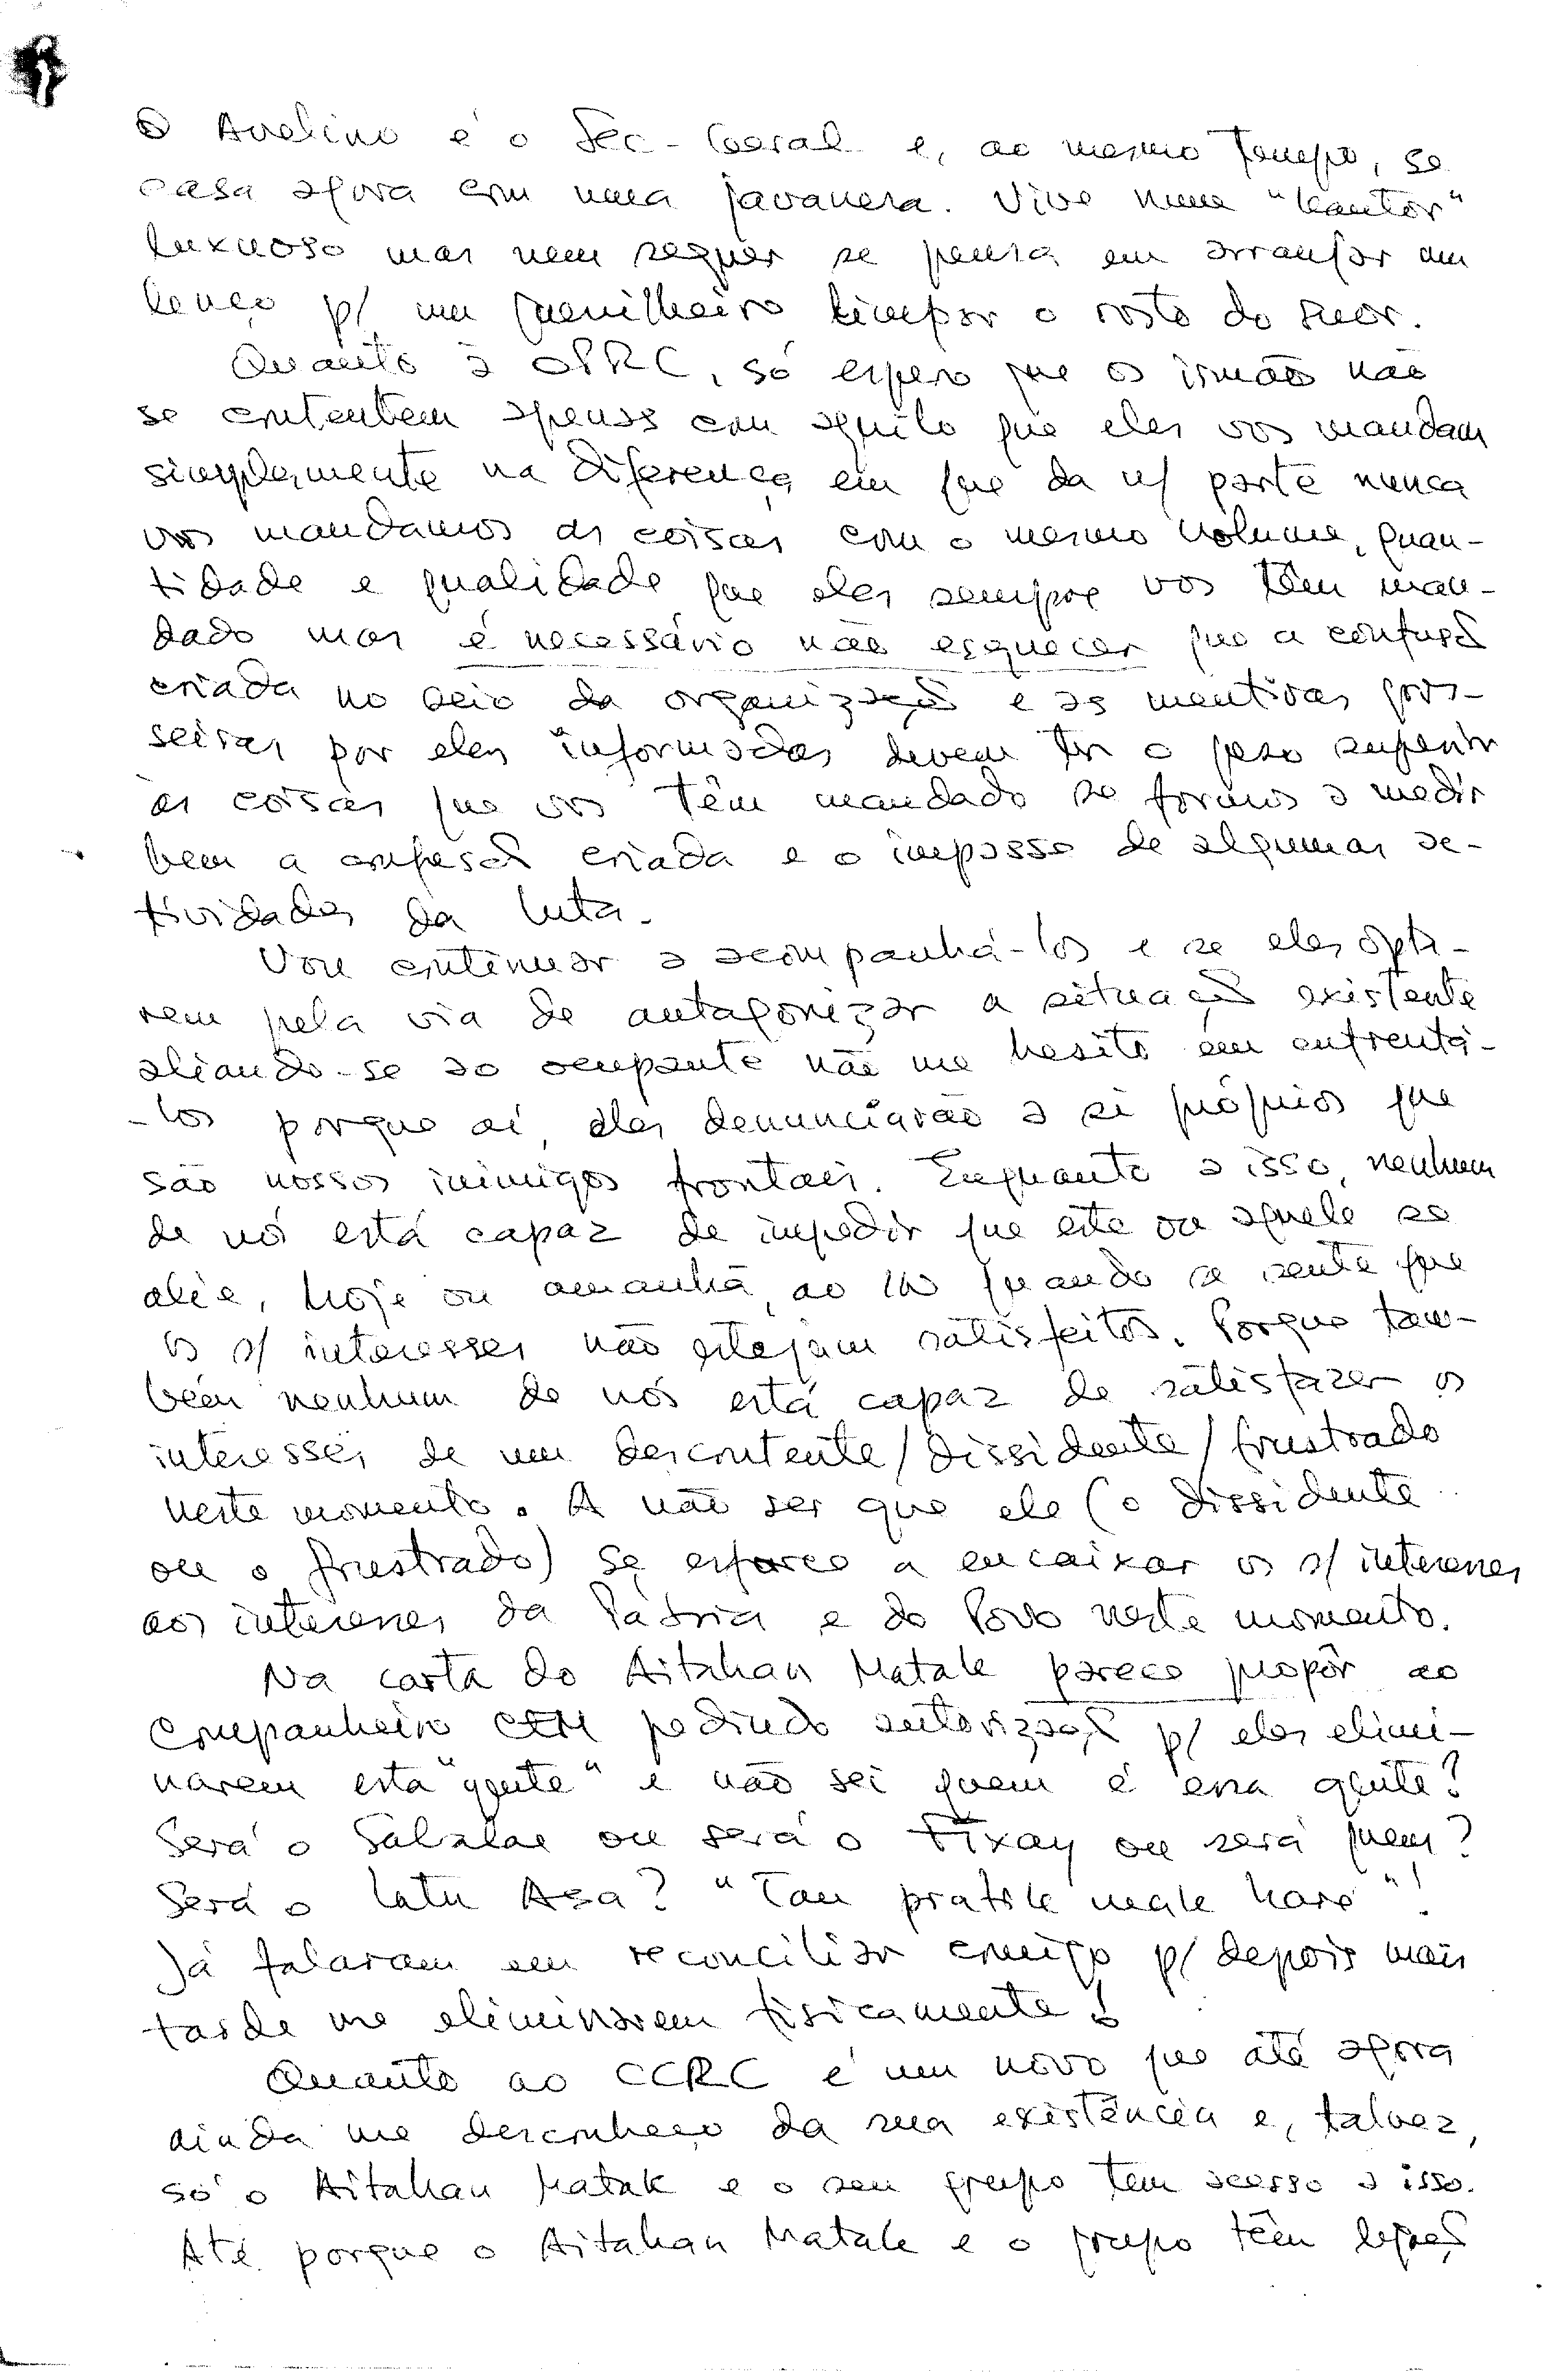 O Avelino é o Sec-Geral e, ao mesmo tempo, se
casa agora com uma javanesa. Vive num "kantor"
luxuoso mas nem sequer se pensa em arranjar um
lenço p/ um guerrilheiro limpar o rosto do suor.
Quanto à OPRC, só espero que os irmãos não
se contentem apenas com aquilo que eles vos mandam
simplesmente na diferença em que da n/ parte nunca
vos mandamos as coisas com o mesmo volume, quan-
tidade e qualidade que eles sempre vos têm man-
dado mas é necessário não esquecer que a confusão
criada no seio da organização e as mentiras gros-
seiras por eles informadas devem ter o peso superior
às coisas que vos têm mandado se formos a medir
bem a confusão criada e o impasse de algumas ac-
tividades da luta.
Vou continuar a acompanhá-los e se eles opta-
rem pela via de antagonizar a situação existente
aliando-se ao ocupante não me hesito em enfrentá-
-los porque aí, eles denunciarão a si próprios que
são nossos inimigos frontais. Enquanto a isso, nenhum
de nós está capaz de impedir que este ou aquele se
alie, hoje ou amanhã, ao IN quando se sente que
os s/ interesses não estejam satisfeitos. Porque tam-
bém nenhum de nós está capaz de satisfazer os
interesses de um descontente/dissidente/frustrado
neste momento. A não ser que ele (o dissidente
ou o frustrado) se esforce a encaixar os s/ interesses
aos interesses da Pátria e do Povo neste momento.
Na carta do Aitahan Matak parece propôr ao
Companheiro pedindo autorização p/ eles elimi-
narem esta "gente" e não sei quem é essa gente?
Será o Sabalae ou será o Fixay ou será quem?
Será o Latu Asa? "Tau pratik male haro"!
Já falaram em reconciliar comigo p/ depois mais
tarde me eliminarem fisicamente!
Quanto ao CCRC é um novo que até agora
ainda me desconheço da sua existência e, talvez,
só o Aitahan Matak e o seu grupo tem acesso a isso.
Até porque o Aitahan Matak e o grupo têm ligação